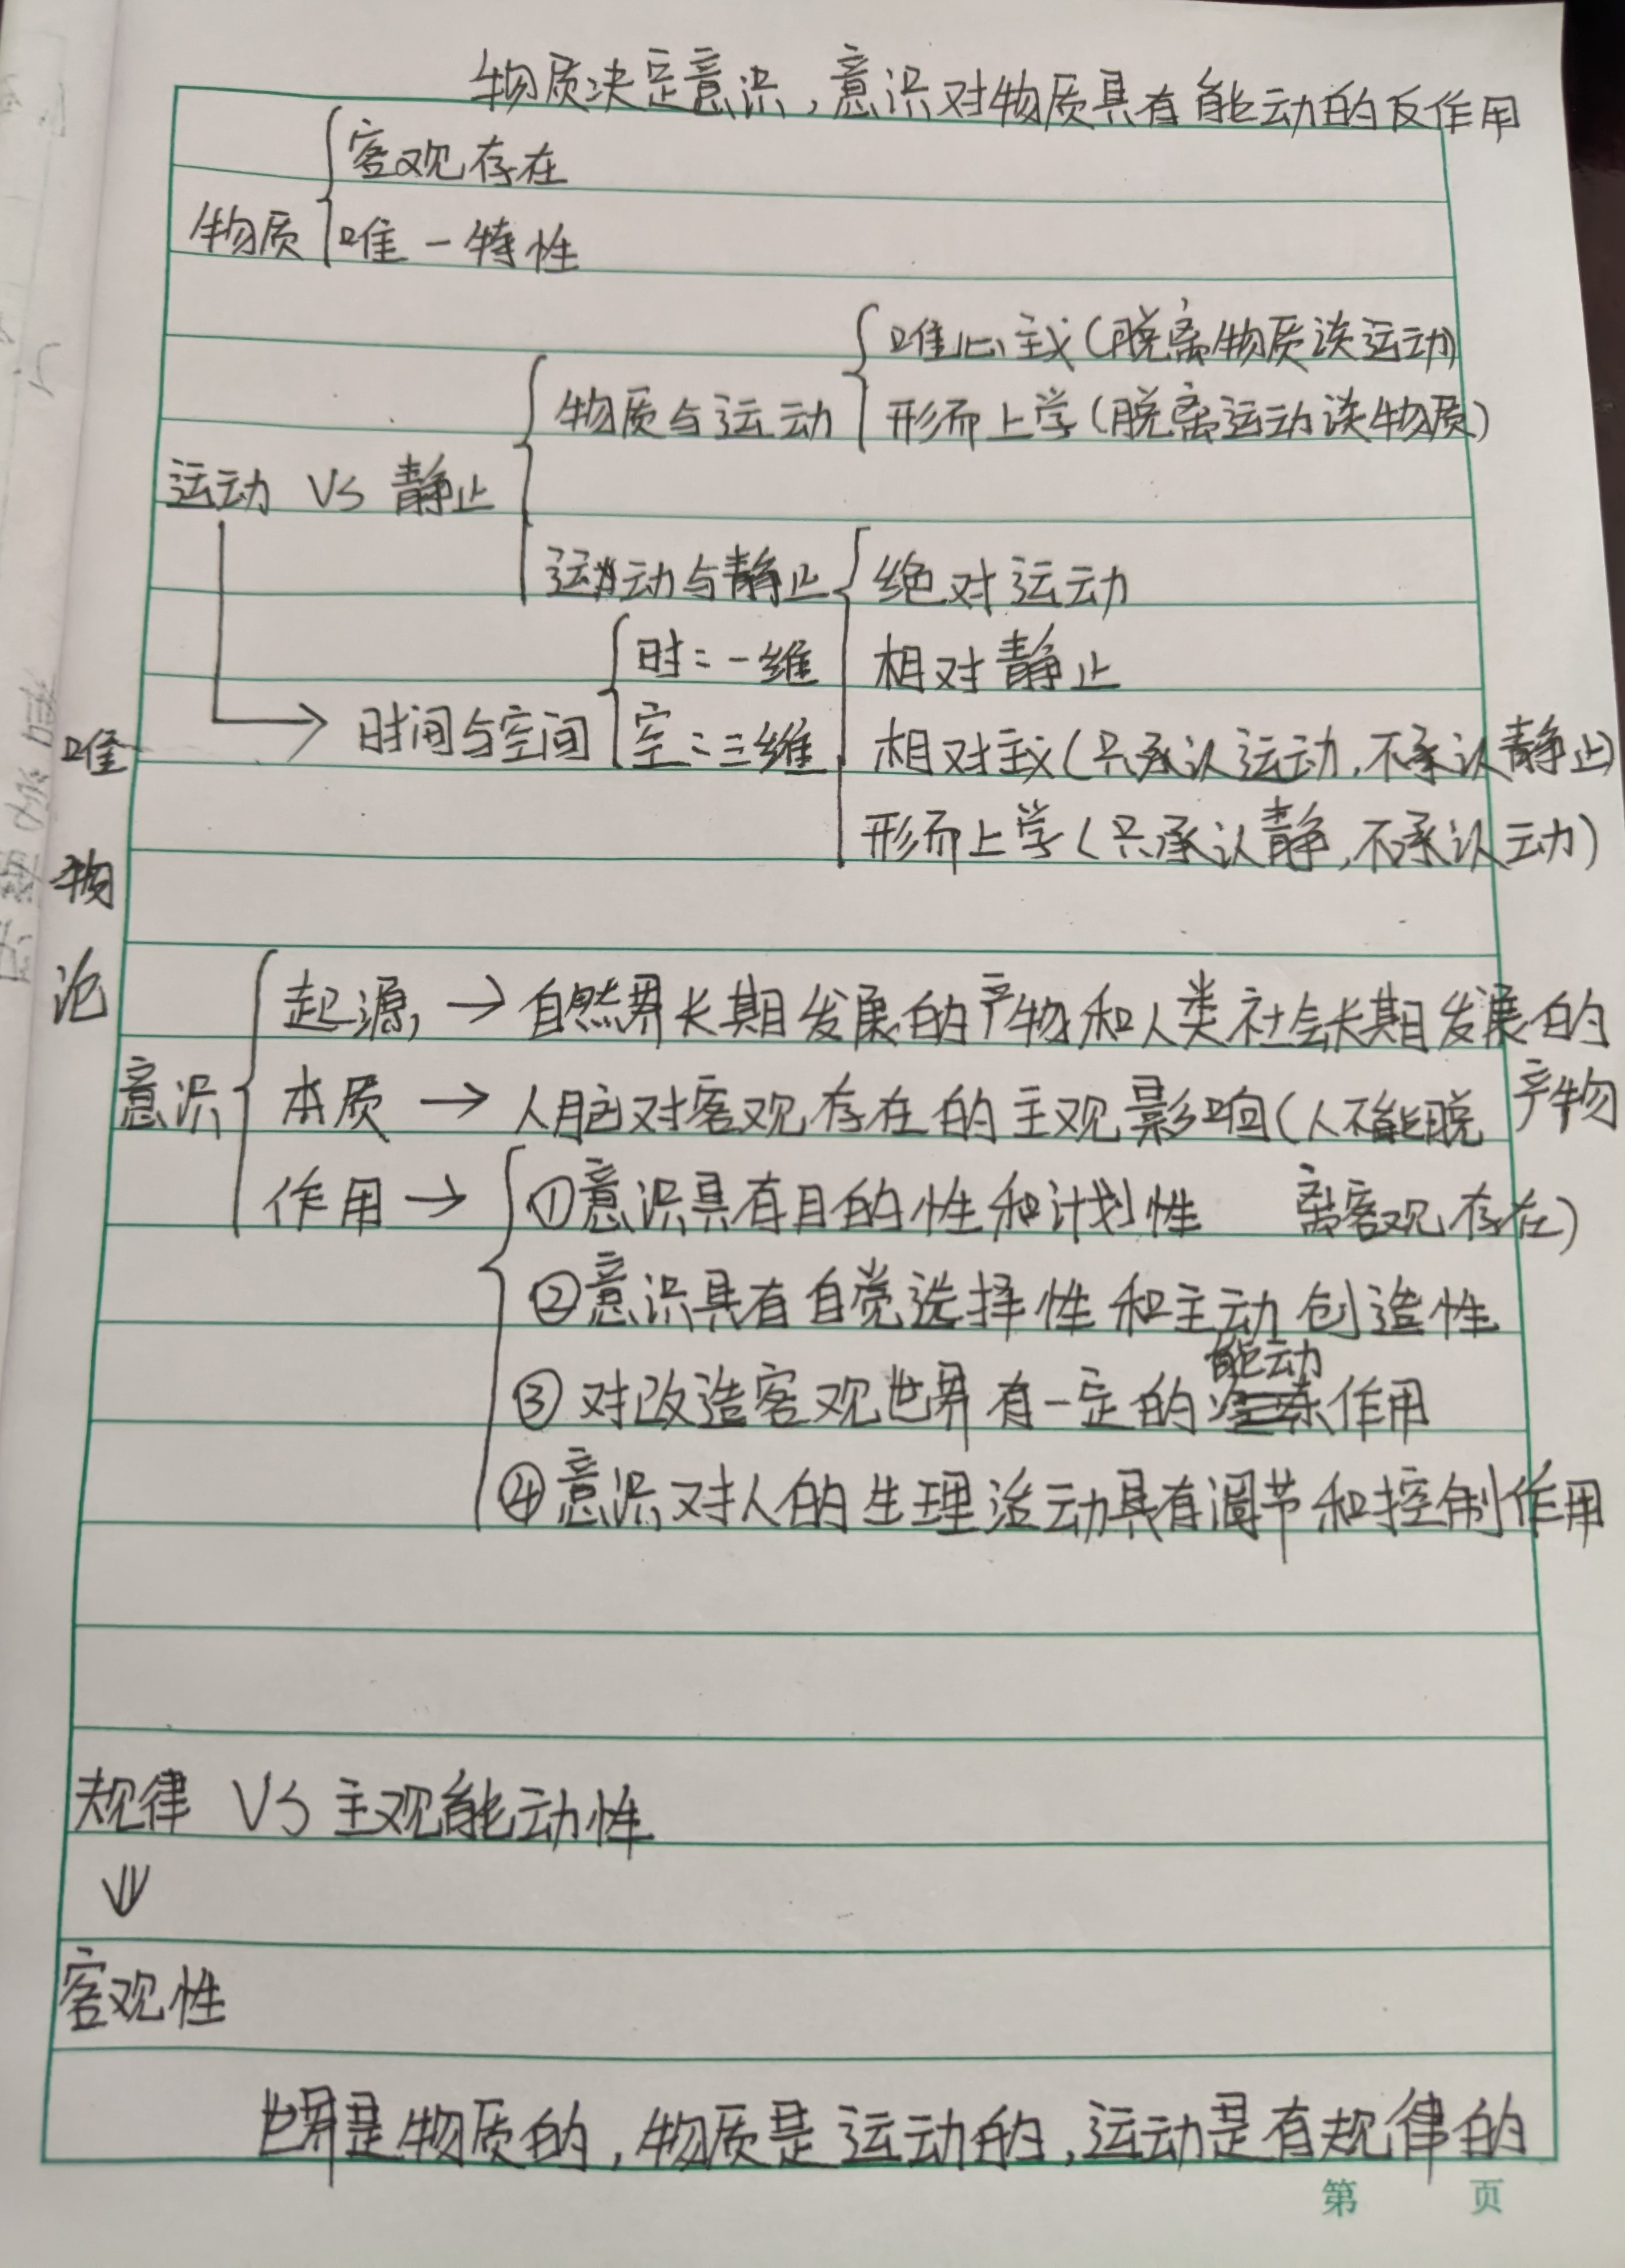 物质决定意识,意识对物质具有能动的反作用
客观存在
物质
唯一特性
唯心主义(脱离物质谈运动)
物质与运动
形而上学(脱离运动谈物质)
运动 VS 静止
运动与静止
绝对运动
时:一维
相对静止
时间与空间
空:三维
相对主义(只承认运动,不承认静止)
形而上学(只承认静,不承认动)
唯
物
论
起源 → 自然界长期发展的产物和人类社会长期发展的
产物
意识
本质 → 人脑对客观存在的主观影响(人不能脱
离客观存在)
作用 →
①意识具有目的性和计划性
②意识具有自觉选择性和主动创造性
能动
③对改造客观世界有一定的作用
④意识对人的生理活动具有调节和控制作用
规律 VS 主观能动性
⇓
客观性
世界是物质的,物质是运动的,运动是有规律的
第 页